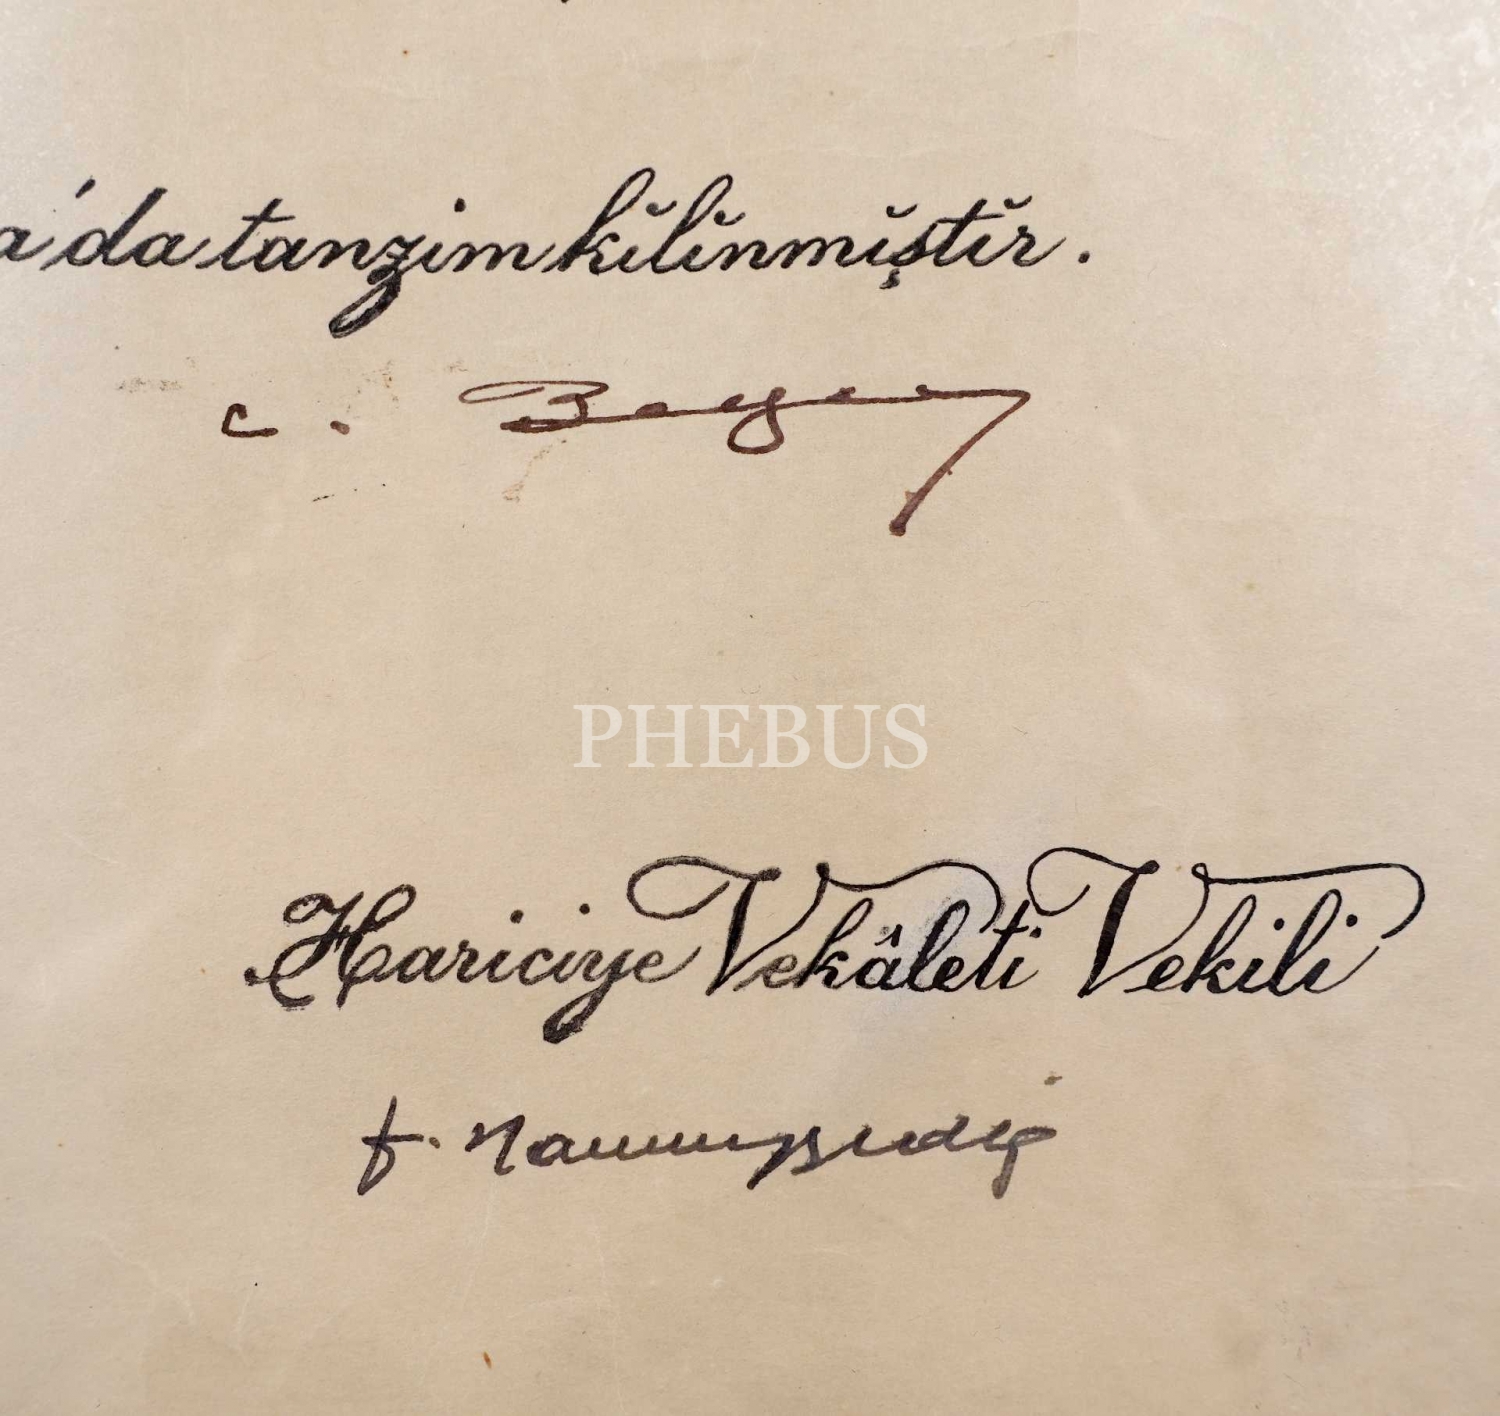 a'da tanzim kĭlĭnmĭştĭr.
C. Bayar
PHEBUS
Hariciye Vekâleti Vekili
f.